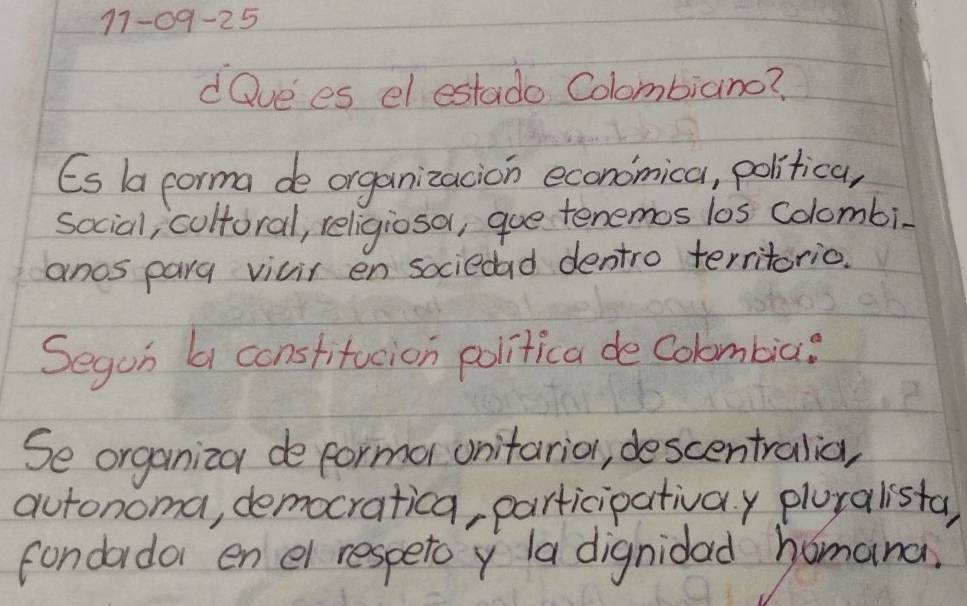 11-09-25
¿Qué es el estado Colombiano?
Es la forma de organización económica, política,
social, cultural, religiosa, que tenemos los colombi-
anos para vivir en sociedad dentro territorio.
Según la constitución política de Colombia:
Se organiza de forma unitaria, descentralia,
autonoma, democratica, participativa y pluralista,
fundada en el respeto y la dignidad humana.